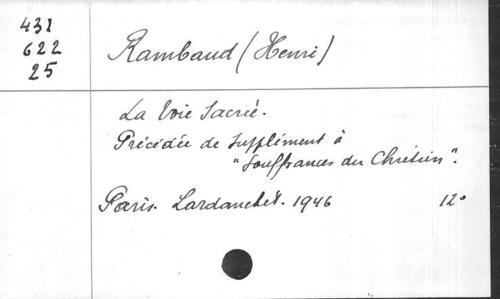 431
622
25
Rambaud (Henri)
La Voie Sacrée.
Précédée de Supplément à
"Souffrances du Chrétien".
Paris. Lardanchet. 1946 12°